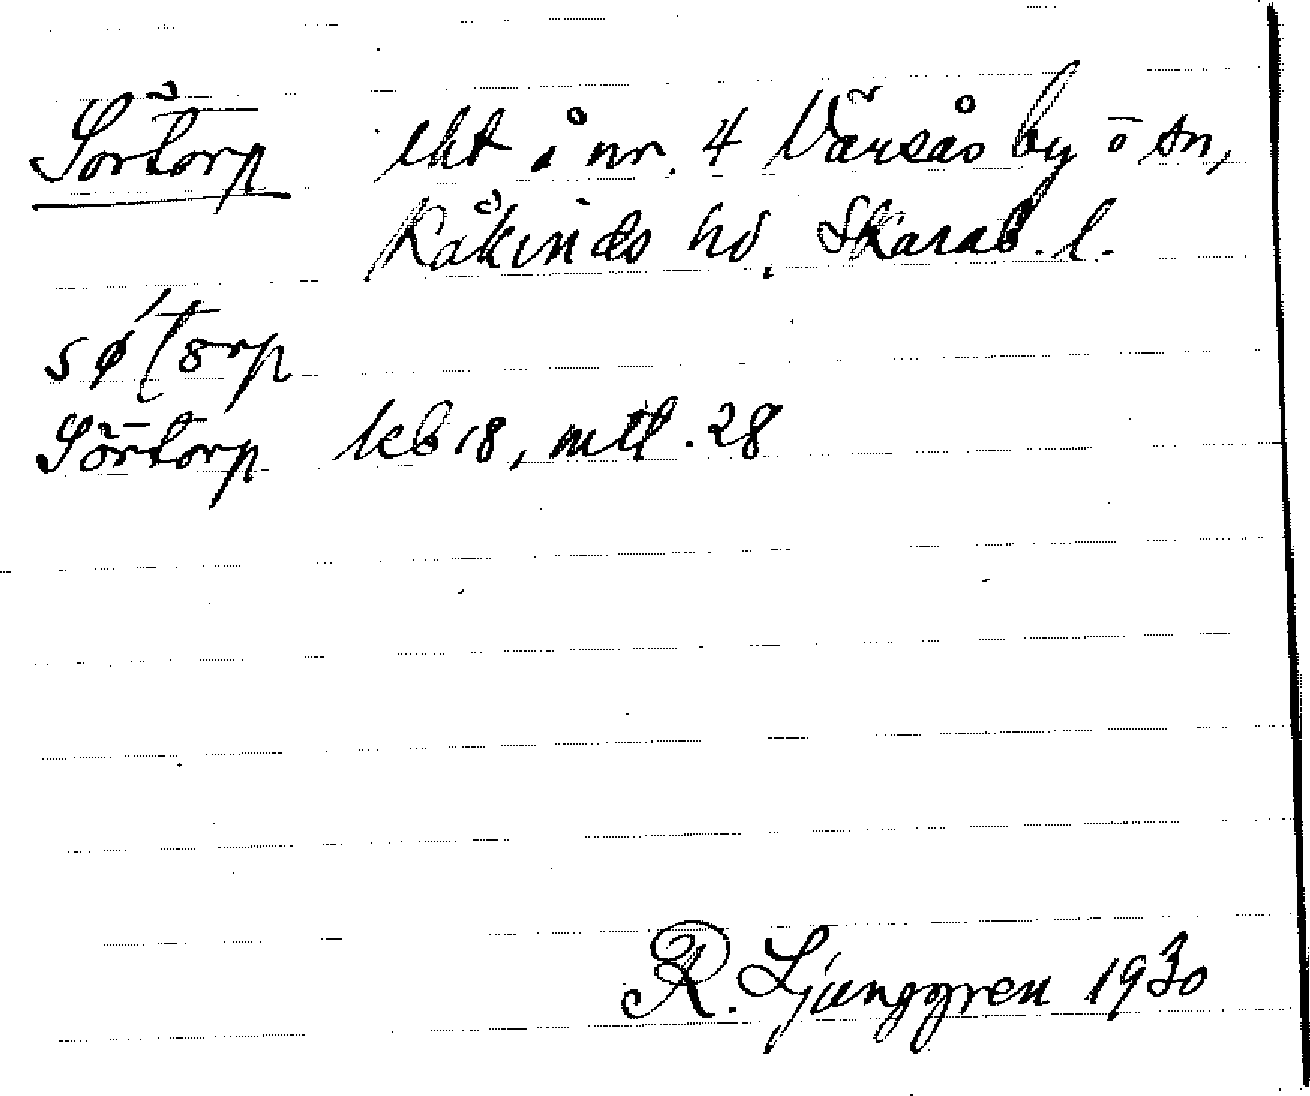 Sörtorp lht å nr. 4 Värsås by ö sn,
Kåkinds hd, Skarab. l.
sǿtorp
Sörtorp kb 18, mtl. 28
R. Ljunggren 1930